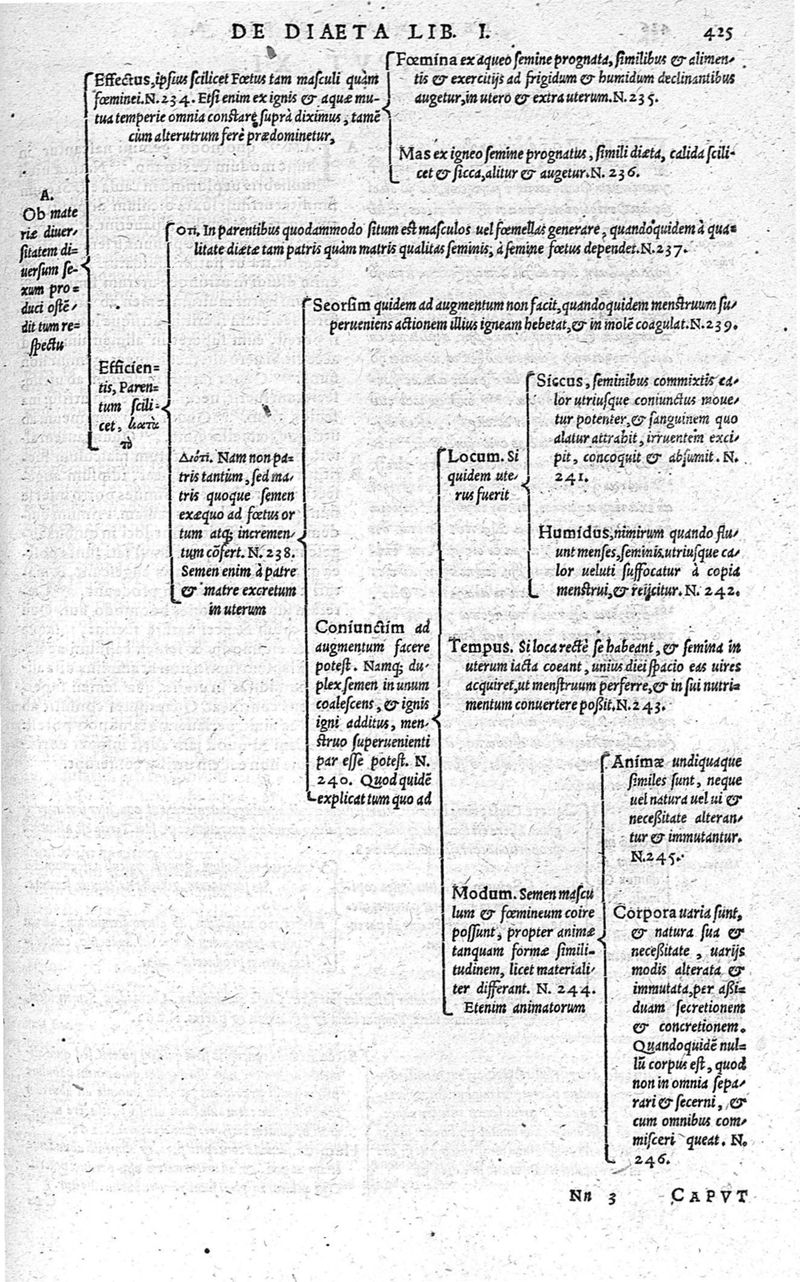 DE DIAETA LIB. I. 425
A.
Ob mate
riæ diuer-
sitatem di-
uersum se-
xum pro-
duci ostē-
dit tum re-
spectu
Effectus, ipsius scilicet Fœtus tam masculi quàm
fœminei. N. 234. Etsi enim ex ignis & aquæ mu-
tua temperie omnia constare suprà diximus, tamē
cùm alterutrum ferè prædominetur,
Fœmina ex aqueo semine prognata, similibus & alimen-
tis & exercitijs ad frigidum & humidum declinantibus
augetur, in utero & extra uterum. N. 235.
Mas ex igneo semine prognatus, simili diæta, calida scili-
cet & sicca, alitur & augetur. N. 236.
Efficien-
tis, Paren-
tum scili-
cet,
τὸ
ὅτι. In parentibus quodammodo situm est masculos uel fœmellas generare, quandoquidem à qua-
litate diætæ tam patris quàm matris qualitas seminis, à semine fœtus dependet. N. 237.
Διότι. Nam non pa-
tris tantùm, sed ma-
tris quoque semen
exæquo ad fœtus or
tum atq; incremen-
tum cōfert. N. 238.
Semen enim à patre
& matre excretum
in uterum
Seorsim quidem ad augmentum non facit, quandoquidem menstruum su-
perueniens actionem illius igneam hebetat, & in molē coagulat. N. 239.
Coniunctim ad
augmentum facere
potest. Namq; du-
plex semen in unum
coalescens, & ignis
igni additus, men-
struo superuenienti
par esse potest. N.
240. Quod quidē
explicat tum quo ad
Locum. Si
quidem ute-
rus fuerit
Siccus, seminibus commixtis ca-
lor utriusque coniunctus moue-
tur potenter, & sanguinem quo
alatur attrahit, irruentem exci-
pit, concoquit & absumit. N.
241.
Humidus, nimirum quando flu-
unt menses, seminis utriusque ca-
lor veluti suffocatur à copia
menstrui, & reijcitur. N. 242.
Tempus. Si loca rectè se habeant, & semina in
uterum iacta coeant, unius diei spacio eas uires
acquiret, ut menstruum perferre, & in sui nutri-
mentum conuertere poßit. N. 243.
Modum. Semen mascu
lum & fœmineum coire
possunt, propter animæ
tanquam formæ simili-
tudinem, licet materiali-
ter differant. N. 244.
Etenim animatorum
Animæ undiquaque
similes sunt, neque
uel natura uel ui &
neceßitate alteran-
tur & immutantur.
N. 245.
Corpora uaria sunt,
& natura sua &
neceßitate, uarijs
modis alterata &
immutata, per aßi-
duam secretionem
& concretionem.
Quandoquidē nul-
lū corpus est, quod
non in omnia sepa-
rari & secerni, &
cum omnibus com-
misceri queat. N.
246.
Nn 3 CAPVT